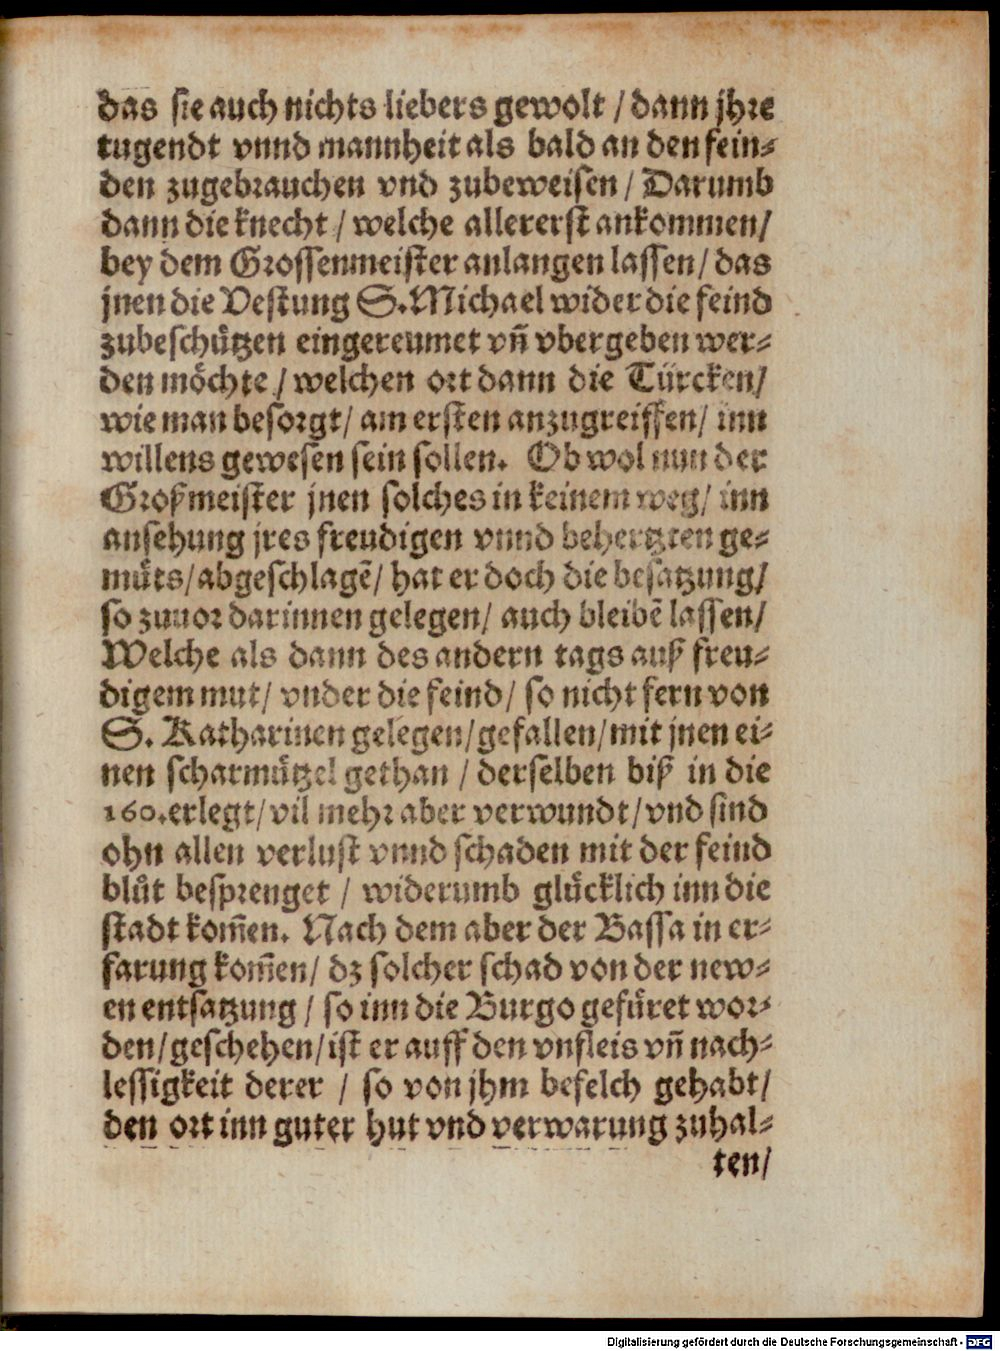 das sie auch nichts liebers gewolt / dann jhre
tugendt vnnd mannheit als bald an den fein⸗
den zugebrauchen vnd zubeweisen / Darumb
dann die knecht / welche allererst ankommen /
bey dem Grossenmeister anlangen lassen / das
jnen die Vestung S. Michael wider die feind
zubeschuͤtzen eingereumet vn̄ vbergeben wer⸗
den moͤchte / welchen ort dann die Tuͤrcken /
wie man besorgt / am ersten anzugreiffen / inn
willens gewesen sein sollen. Ob wol nun der
Großmeister jnen solches in keinem weg / inn
ansehung jres freudigen vnnd behertzten ge⸗
muͤts / abgeschlagē / hat er doch die besatzung /
so zuuor darinnen gelegen / auch bleibē lassen /
Welche als dann des andern tags auß freu⸗
digem mut / vnder die feind / so nicht fern von
S. Katharinen gelegen / gefallen / mit jnen ei⸗
nen scharmuͤtzel gethan / derselben biß in die
160. erlegt / vil mehr aber verwundt / vnd sind
ohn allen verlust vnnd schaden mit der feind
bluͦt besprenget / widerumb gluͤcklich inn die
stadt kom̄en. Nach dem aber der Bassa in er⸗
farung kom̄en / dz solcher schad von der new⸗
en entsatzung / so inn die Burgo gefuͤret wor⸗
den / geschehen / ist er auff den vnfleis vn̄ nach⸗
lessigkeit derer / so von jhm befelch gehabt /
den ort inn guter hut vnd verwarung zuhal⸗
ten /
Digitalisierung gefördert durch die Deutsche Forschungsgemeinschaft - DFG